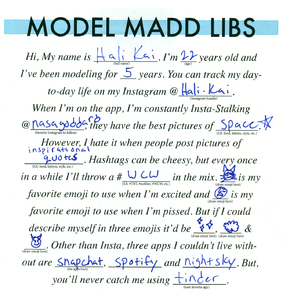 MODEL MADD LIBS
Hi, My name is Hali Kai. I'm 22 years old and
I've been modeling for 5 years. You can track my day-
to-day life on my Instagram @ Hali.Kai.
When I'm on the app, I'm constantly Insta-Stalking
@nasagoddard, they have the best pictures of space.
However, I hate it when people post pictures of
inspirational
quotes. Hashtags can be cheesy, but every once
in a while I'll throw a # WCW in the mix. is my
favorite emoji to use when I'm excited and is my
favorite emoji to use when I'm pissed. But if I could
describe myself in three emojis it'd be , &
. Other than Insta, three apps I couldn't live with-
out are snapchat, spotify and nightsky. But,
you'll never catch me using tinder.